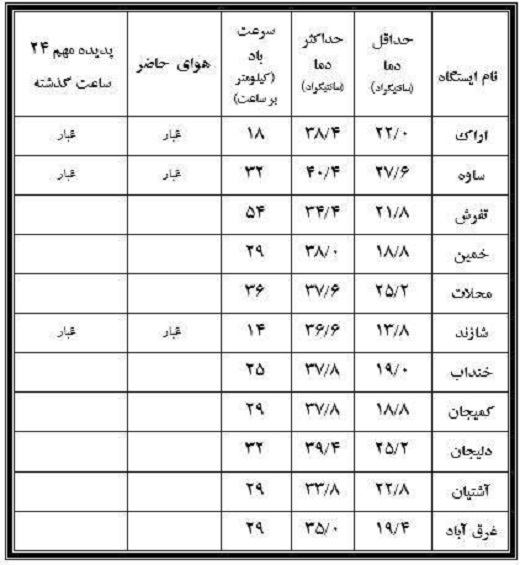 نام ایستگاه | حداقل دما (سانتیگراد) | حداکثر دما (سانتیگراد) | سرعت باد (کیلومتر بر ساعت) | هوای حاضر | پدیده مهم ۲۴ ساعت گذشته
اراک | ۲۲/۰ | ۳۸/۴ | ۱۸ | غبار | غبار
ساوه | ۲۷/۶ | ۴۰/۴ | ۳۲ | غبار | غبار
تفرش | ۲۱/۸ | ۳۴/۴ | ۵۴
خمین | ۱۸/۸ | ۳۸/۰ | ۲۹
محلات | ۲۵/۲ | ۳۷/۶ | ۳۶
شازند | ۱۳/۸ | ۳۶/۶ | ۱۴ | غبار | غبار
خنداب | ۱۹/۰ | ۳۷/۸ | ۲۵
کمیجان | ۱۸/۸ | ۳۷/۸ | ۲۹
دلیجان | ۲۵/۲ | ۳۹/۴ | ۳۲
آشتیان | ۲۲/۸ | ۳۳/۸ | ۲۹
غرق آباد | ۱۹/۴ | ۳۵/۰ | ۲۹